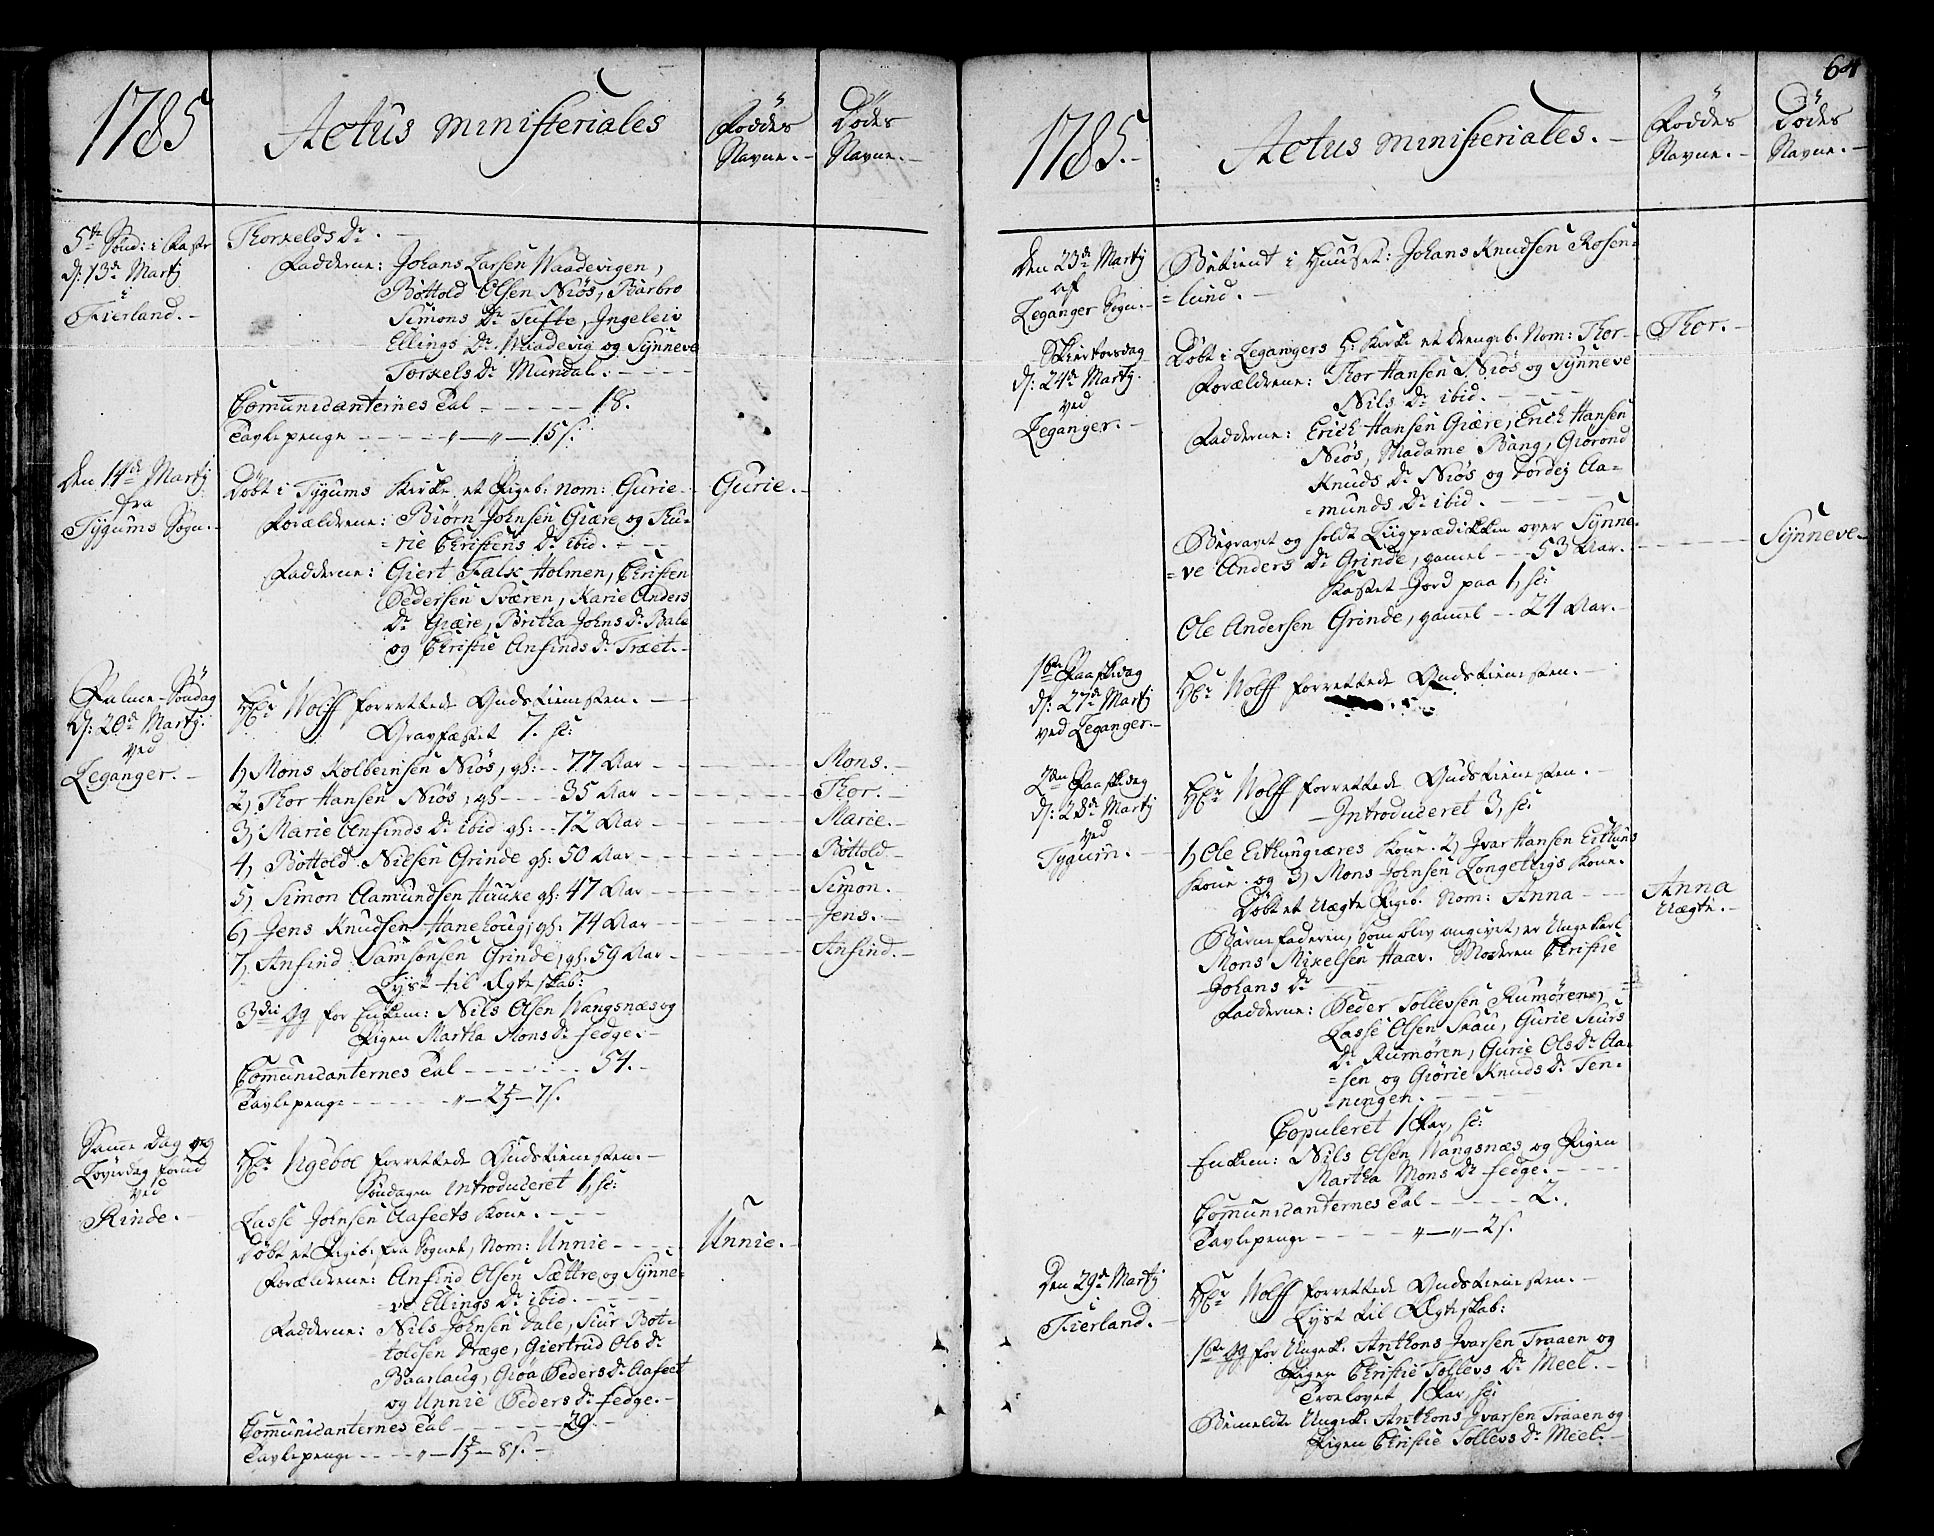 1785
Actus ministeriales
Föddes
Navne.
Dödes
Navne.
5te Sönd: i Faste
d: 13de Martj
i
Fierland.
Thorkelds Dr.
Fadderne: Johans Larsen Waadevigen,
Böttold Olsen Niös, Barbro
Simons Dr Tufte, Ingeleiv
Ellings Dr. Waadevig og Sÿnneve
Torkels Dr Mundal.
Comunicanternes Tal - - - - - 18.
Tavlepenge - - - - „ — „ — 15 s.
Den 14de Martj
fra
Tygums Sogn.
Döbt i Tygums Kirke et Pigeb. nom: Gurie
Gurie.
Forældrene: Biörn Johnsen Giære og Thu-
=rie Christens Dr ibid.
Fadderne: Giert Falk Holmen, Christen
Pedersen Sværen, Karie Anders
Dr Giære, Britha Johns Dr Bale
og Christie Anfinds Dr Træet.
Palme-Söndag
D: 20de Martj.
ved
Leganger.
Hr Wolff forrettede Gudstienesten.
Gravfæstet 7. sc:
1, Mons Kolbeinsen Niös, gl: 77 Aar
Mons.
2, Thor Hansen Niös, gl 35 Aar
Thor.
3, Marie Anfinds Dr ibid gl: 72 Aar
Marie.
4, Böttold Nilsen Grinde gl: 50 Aar
Böttold
5, Simon Aamundsen Huuke gl: 47 Aar
Simon.
6, Jens Knudsen Hanehoug, gl: 74 Aar
Jens.
7, Anfind Samsonsen Grinde, gl. 59 Aar
Anfind.
Lyst til Ægteskab:
3die gg for Enkem: Nils Olsen Wangsnæs og
Pigen Martha Mons Dr Fedge.
Comunicanternes Tal - - - - - - 54.
Tavlepenge - - - - - „ — 2 — 7 s.
Samme Dag og
Löverdag forud
ved
Rinde.
Hr Ugeboe forrettede Gudstienesten.
Söndagen Introduceret 1, sc:
Lasse Johnsen Aafeets Kone.
Döbt et Pigeb. fra Sognet, Nom: Unnie
Unnie.
Forældrene: Anfind Olsen Sættre og Sÿnne-
=ve Ellings Dr ibid.
Fadderne: Nils Johnsen Dale, Siur Bot-
toldsen Dræge, Giertrud Ols Dr
Baarlaug, Gröa Peders Dr Aafeet
og Unnie Peders Dr Fedge.
Comunicanternes Tal - - - - - - 29.
Tavlepenge - - - „ — 1 — 8 s.
64
1785.
Actus ministeriales.
Föddes
Navne.
Dödes
Navne.
Den 23de Martj
af
Leganger Sogn.
Betient i Huuset: Johans Knudsen Rosen-
=lund.
Skiertorsdag
d: 24de Martj.
ved
Leganger.
Döbt i Legangers H: Kirke et Drengeb. Nom: Thor
Thor.
Forældrene: Thor Hansen Niös og Sÿnneve
Nils Dr ibid.
Fadderne: Erich Hansen Giære, Erich Hansen
Niös, Madame Bang, Giörond
Knuds Dr Niös og Tordej Aa-
=munds Dr ibid.
Begravet og holdt Liigprædikken over Sÿnne-
Sÿnneve
=ve Anders Dr Grinde, gamel 53 Aar.
Kastet Jord paa 1, sc:
Ole Andersen Grinde, gammel 24 Aar.
1te Paaskedag
d: 27de Martj
ved Leganger.
Hr Wolff forrettede Gudstienesten.
2den Paaskedag
d: 28de Martj
ved
Tygum.
Hr Wolff forrettede Gudstienesten.
Introduceret 3, sc:
1, Ole Eithungiæres Kone. 2, Iver Hansen Eithuns
Kone. og 3, Mons Johnsen Longeteigs Kone.
Döbt et Uægte Pigeb. Nom: Anna
Anna
Uægte.
Barnefaderen, som blev angivet, er Ungekarl
Mons Mikelsen Haav. Moderen Christie
Johans Dr
Fadderne: Peder Tollevsen Rumören,
Lasse Olsen Skau, Gurie Siurs
Dr Rumören, Gurie Ols Dr Aa-
=sen og Giörie Knuds Dr Ten-
=ningen.
Copuleret 1 Par, sc:
Enkem: Nils Olsen Wangsnæs og Pigen
Martha Mons Dr Fedge.
Comunicanternes Tal - - - - - 2.
Tavlepenge - - - - - „ — „ — 2 s.
Den 29de Martj
i
Fierland.
Hr Wolff forrettede Gudstienesten.
Lyst til Ægteskab:
1te gg for Ungek. Anthons Ivarsen Traaen og
Pigen Christie Tollevs Dr Meel.
Troelovet 1 Par, sc:
Bemeldte Ungek: Anthons Ivarsen Traaen og
Pigen Christie Tollevs Dr Meel.